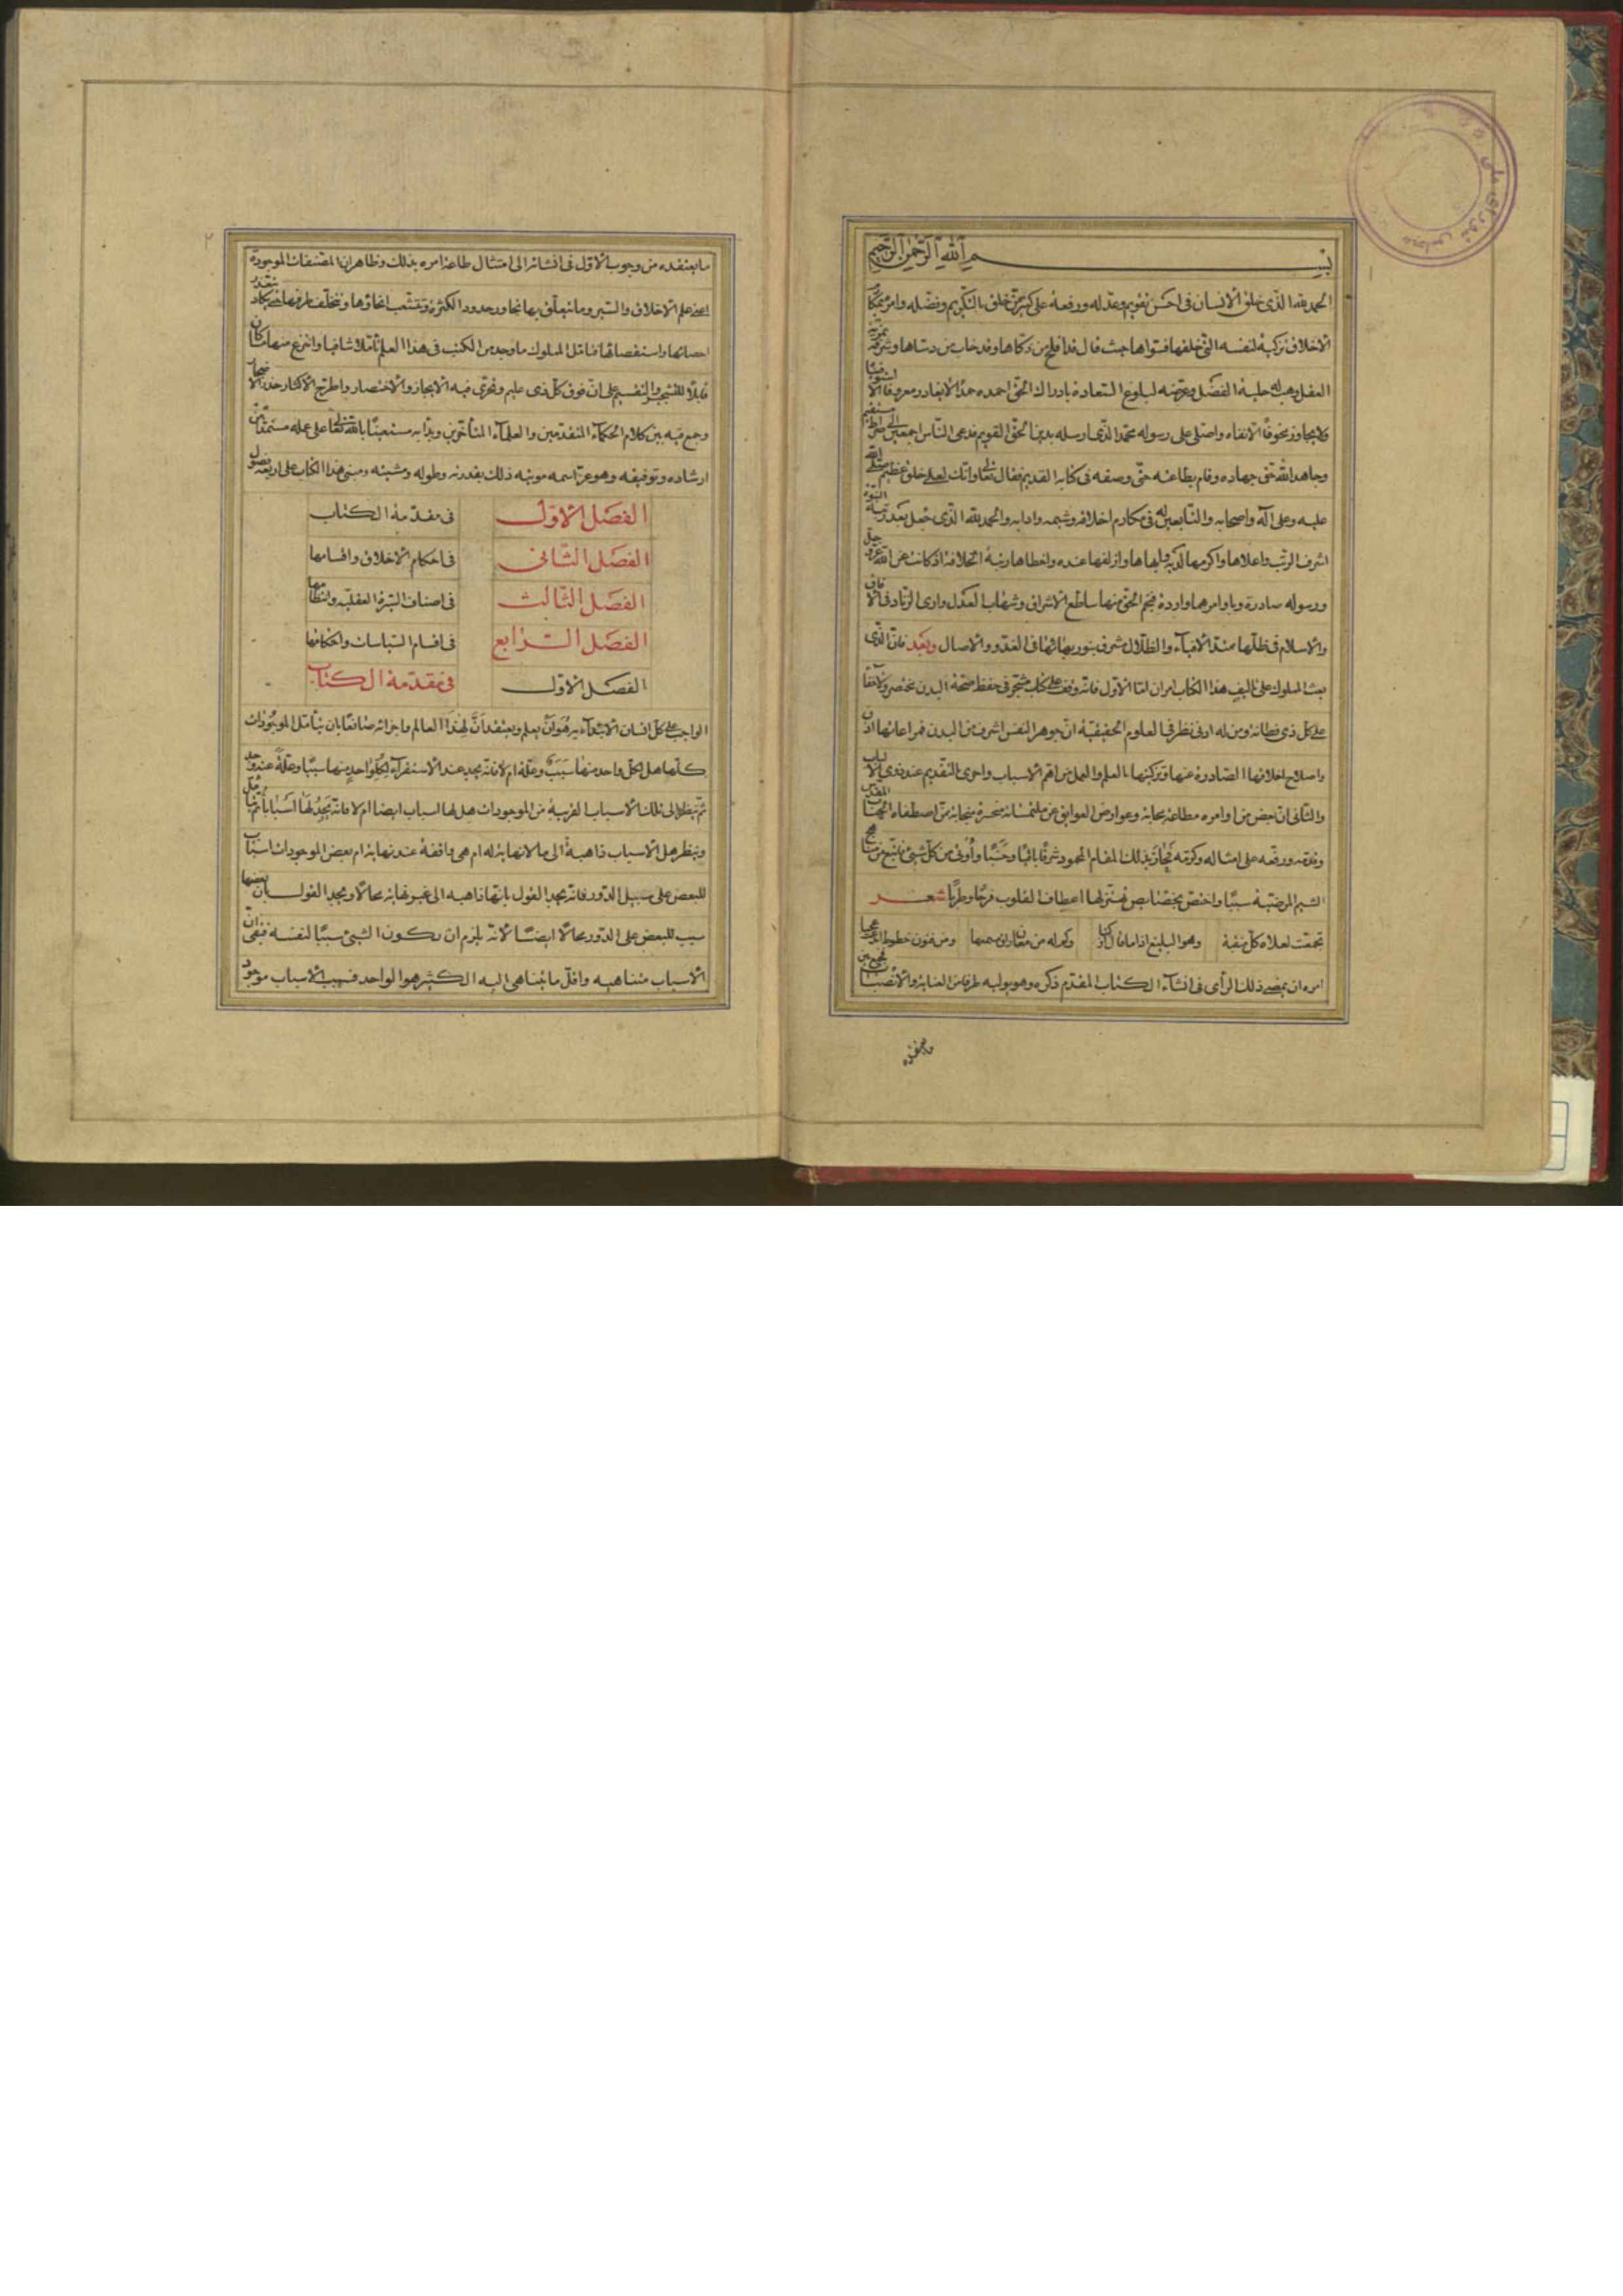 بسم الله الرحمن الرحيم
الحمد لله الذی خلق الانسان فی احسن تقویم وعدّله ورفعه علی کثیر ممّن خلق بالتّکریم وفضّله وامره بمکارم
الاخلاق تزکیة لنفسه الّتی خلقها فسوّاها حیث قال قد افلح من زکّاها وقد خاب من دسّاها وشرّفه بمزیّة
العقل وهب له حلیة الفضل وعرّضه لبلوغ السّعادة بادراک الحقّ احمده حمدًا لا یغادر معروفًا الّا
ولا یجاوز مخوفًا الّا نفاه واصلّی علی رسوله محمّد الّذی ارسله بدین الحقّ القویم فدعی النّاس اجمعین الی صراط مستقیم
وجاهد الله حقّ جهاده وقام بطاعته حتّی وصفه فی کتابه القدیم فقال تعالی وانّک لعلی خلق عظیم صلّی الله
علیه وعلی آله واصحابه والتّابعین له فی مکارم اخلاقه وشیمه وآدابه والحمد لله الّذی جعل بعد رتبة النبوّة
اشرف الرّتب واعلاها واکرمها لدیه واحظاها وازلفها عنده رتبة الخلافة اذ کانت عن الله عزّ وجلّ
ورسوله صادرة وباوامرهما واردة فنجم الحقّ منها ساطع الاشراق وشهاب العدل واری الزّناد
والاسلام فی ظلّها ممتدّ الافیاء والظّلال مشرق بنور بهائها فی الغدوّ والاصال وبعد فانّ الّذی
بعث المملوک علی تألیف هذا الکتاب امران امّا الاوّل فانّه وقف علی کتاب مشجّر فی حفظ صحّة البدن مختصر ولا خفآء
علی کلّ ذی فطانة ومن له ادنی نظر فی العلوم الحقیقیّة انّ جوهر النّفس اشرف من البدن فمراعاتها اذن
واصلاح اخلاقها الصّادرة عنها وتزکیتها بالعلم والعمل من اهمّ الاسباب واحری بالتّقدیم عند ذوی الالباب
والثّانی انّ بعض من اوامره مطاعة وعوارض العوایق عن ملتمساته منحسرة ممّن اصطفاه الجناب المقدّس
وقدّمه ورفعه علی امثاله وکرّمه فحاز بذلک المقام المحمود شرفًا وحسبًا واوتی من کلّ شیئ
الشّیم المرضیّة سببًا واختصّ بخصایص تهتزّ لها اعطاف القلوب فرحًا وطربًا شعر
تجمّعت لعلاه کلّ منقبة
امره ان یمضی ذلک الرّأی فی انشآء الکتاب المقدّم ذکره وهو یولیه طرفًا من العنایة والانصباب
ما یعتقده
۲
ما یعتقده من وجوب الاوّل فی انشائه الی امتثال طاعة امره بذلک وظاهر ان المصنّفات الموجودة
اعنی علم الاخلاق والسّیر وما یتعلّق بها تجاوز حدود الکثرة وتتشعّب انحاؤها وتختلف طرقها حتی یکاد یتعذّر
احصائها واستقصائها فتامّل المملوک ما وجد من الکتب فی هذا العلم تأمّلًا شافیًا وانتزع منها ما کان
قابلًا للتّشجیر والتّقسیم علی انّ فوق کلّ ذی علیم وتحرّی فیه الایجاز والاختصار واطرح الاکثار حذر الاضجار
وجمع فیه بین کلام الحکمآء المتقدّمین والعلمآء المتأخّرین وبدأ به مستعینًا بالله تعالی علی عمله مستمدًّا من
ارشاده وتوفیقه وهو عزّ اسمه موتیه ذلک بقدرته وطوله ومشیّته ومبنی هذا الکتاب علی اربعة فصول
الفصل الاوّل فی مقدّمة الکتاب
الفصل الثّانی فی احکام الاخلاق واقسامها
الفصل الثّالث فی اصناف السّیرة العقلیّة وانتظامها
الفصل الرّابع فی اقسام السّیاسات واحکامها
الفصل الاوّل فی مقدّمة الکتاب
الواجب علی کلّ انسان الابتدآء به هو ان یعلم ویعتقد انّ لهذا العالم واجزائه صانعًا بان یتأمّل الموجودات
کلّها هل لکلّ واحد منها سبب وعلّة ام لا فانّه یجد عند الاستقرآء لکلّ واحد منها سببًا وعلّة عنه وجد
ثمّ ینظر الی تلک الاسباب القریبة من الموجودات هل لها اسباب ایضا ام لا فانّه یجد لها اسبابًا ثمّ یتأمّل
وینظر هل الاسباب ذاهبة الی ما لا نهایة له ام هی واقفة عند نهایة ام بعض الموجودات اسباب
للبعض علی سبیل الدّور فانّه یجد القول بانّها ذاهبة الی غیر نهایة محالًا ویجد القول بانّ بعضها
سبب للبعض علی الدّور محالًا ایضًا لانّه یلزم ان یکون الشّیئ سببًا لنفسه فبقی انّ
الاسباب متناهیة واقلّ ما یتناهی الیه الکثیر هو الواحد فسبب الاسباب موجود